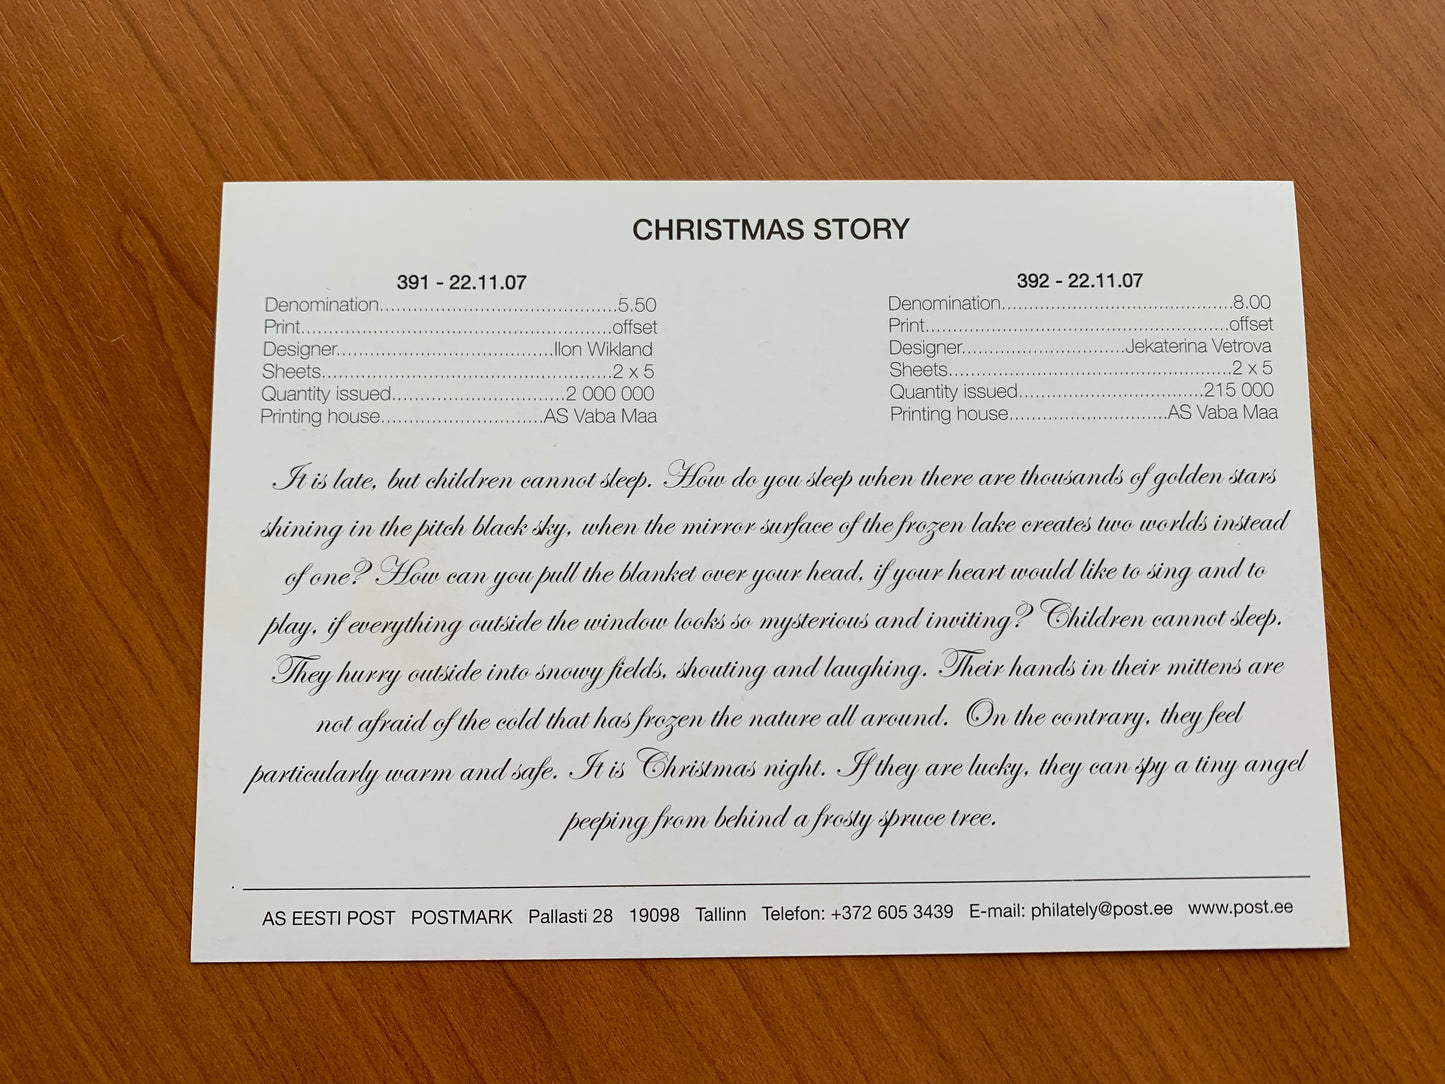 CHRISTMAS STORY
391 - 22.11.07
Denomination............................................5.50
Print..........................................................offset
Designer........................................Ilon Wikland
Sheets...........................................................2 x 5
Quantity issued................................2 000 000
Printing house..............................AS Vaba Maa
392 - 22.11.07
Denomination...........................................8.00
Print........................................................offset
Designer..............................Jekaterina Vetrova
Sheets....................................................2 x 5
Quantity issued..................................215 000
Printing house.............................AS Vaba Maa
It is late, but children cannot sleep. How do you sleep when there are thousands of golden stars
shining in the pitch black sky, when the mirror surface of the frozen lake creates two worlds instead
of one? How can you pull the blanket over your head, if your heart would like to sing and to
play, if everything outside the window looks so mysterious and inviting? Children cannot sleep.
They hurry outside into snowy fields, shouting and laughing. Their hands in their mittens are
not afraid of the cold that has frozen the nature all around. On the contrary, they feel
particularly warm and safe. It is Christmas night. If they are lucky, they can spy a tiny angel
peeping from behind a frosty spruce tree.
AS EESTI POST POSTMARK Pallasti 28 19098 Tallinn Telefon: +372 605 3439 E-mail: philately@post.ee www.post.ee